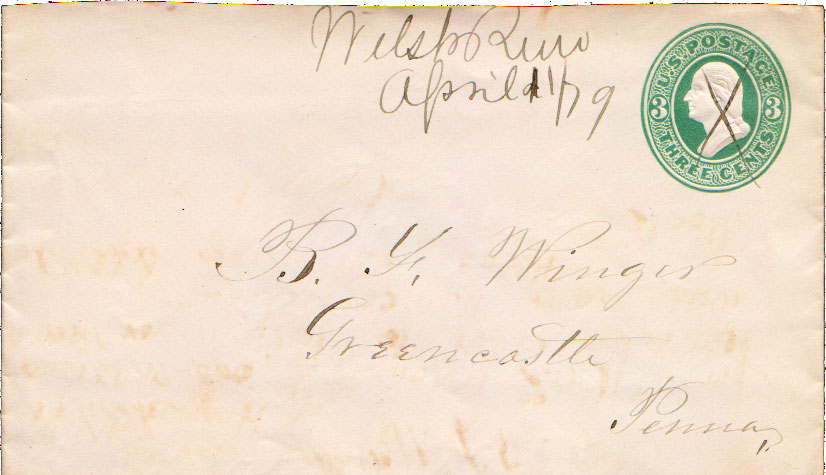 Welsh Run
April 11/79
U.S. POSTAGE
3 3
THREE CENTS
B. F. Winger
Greencastle
Penna,